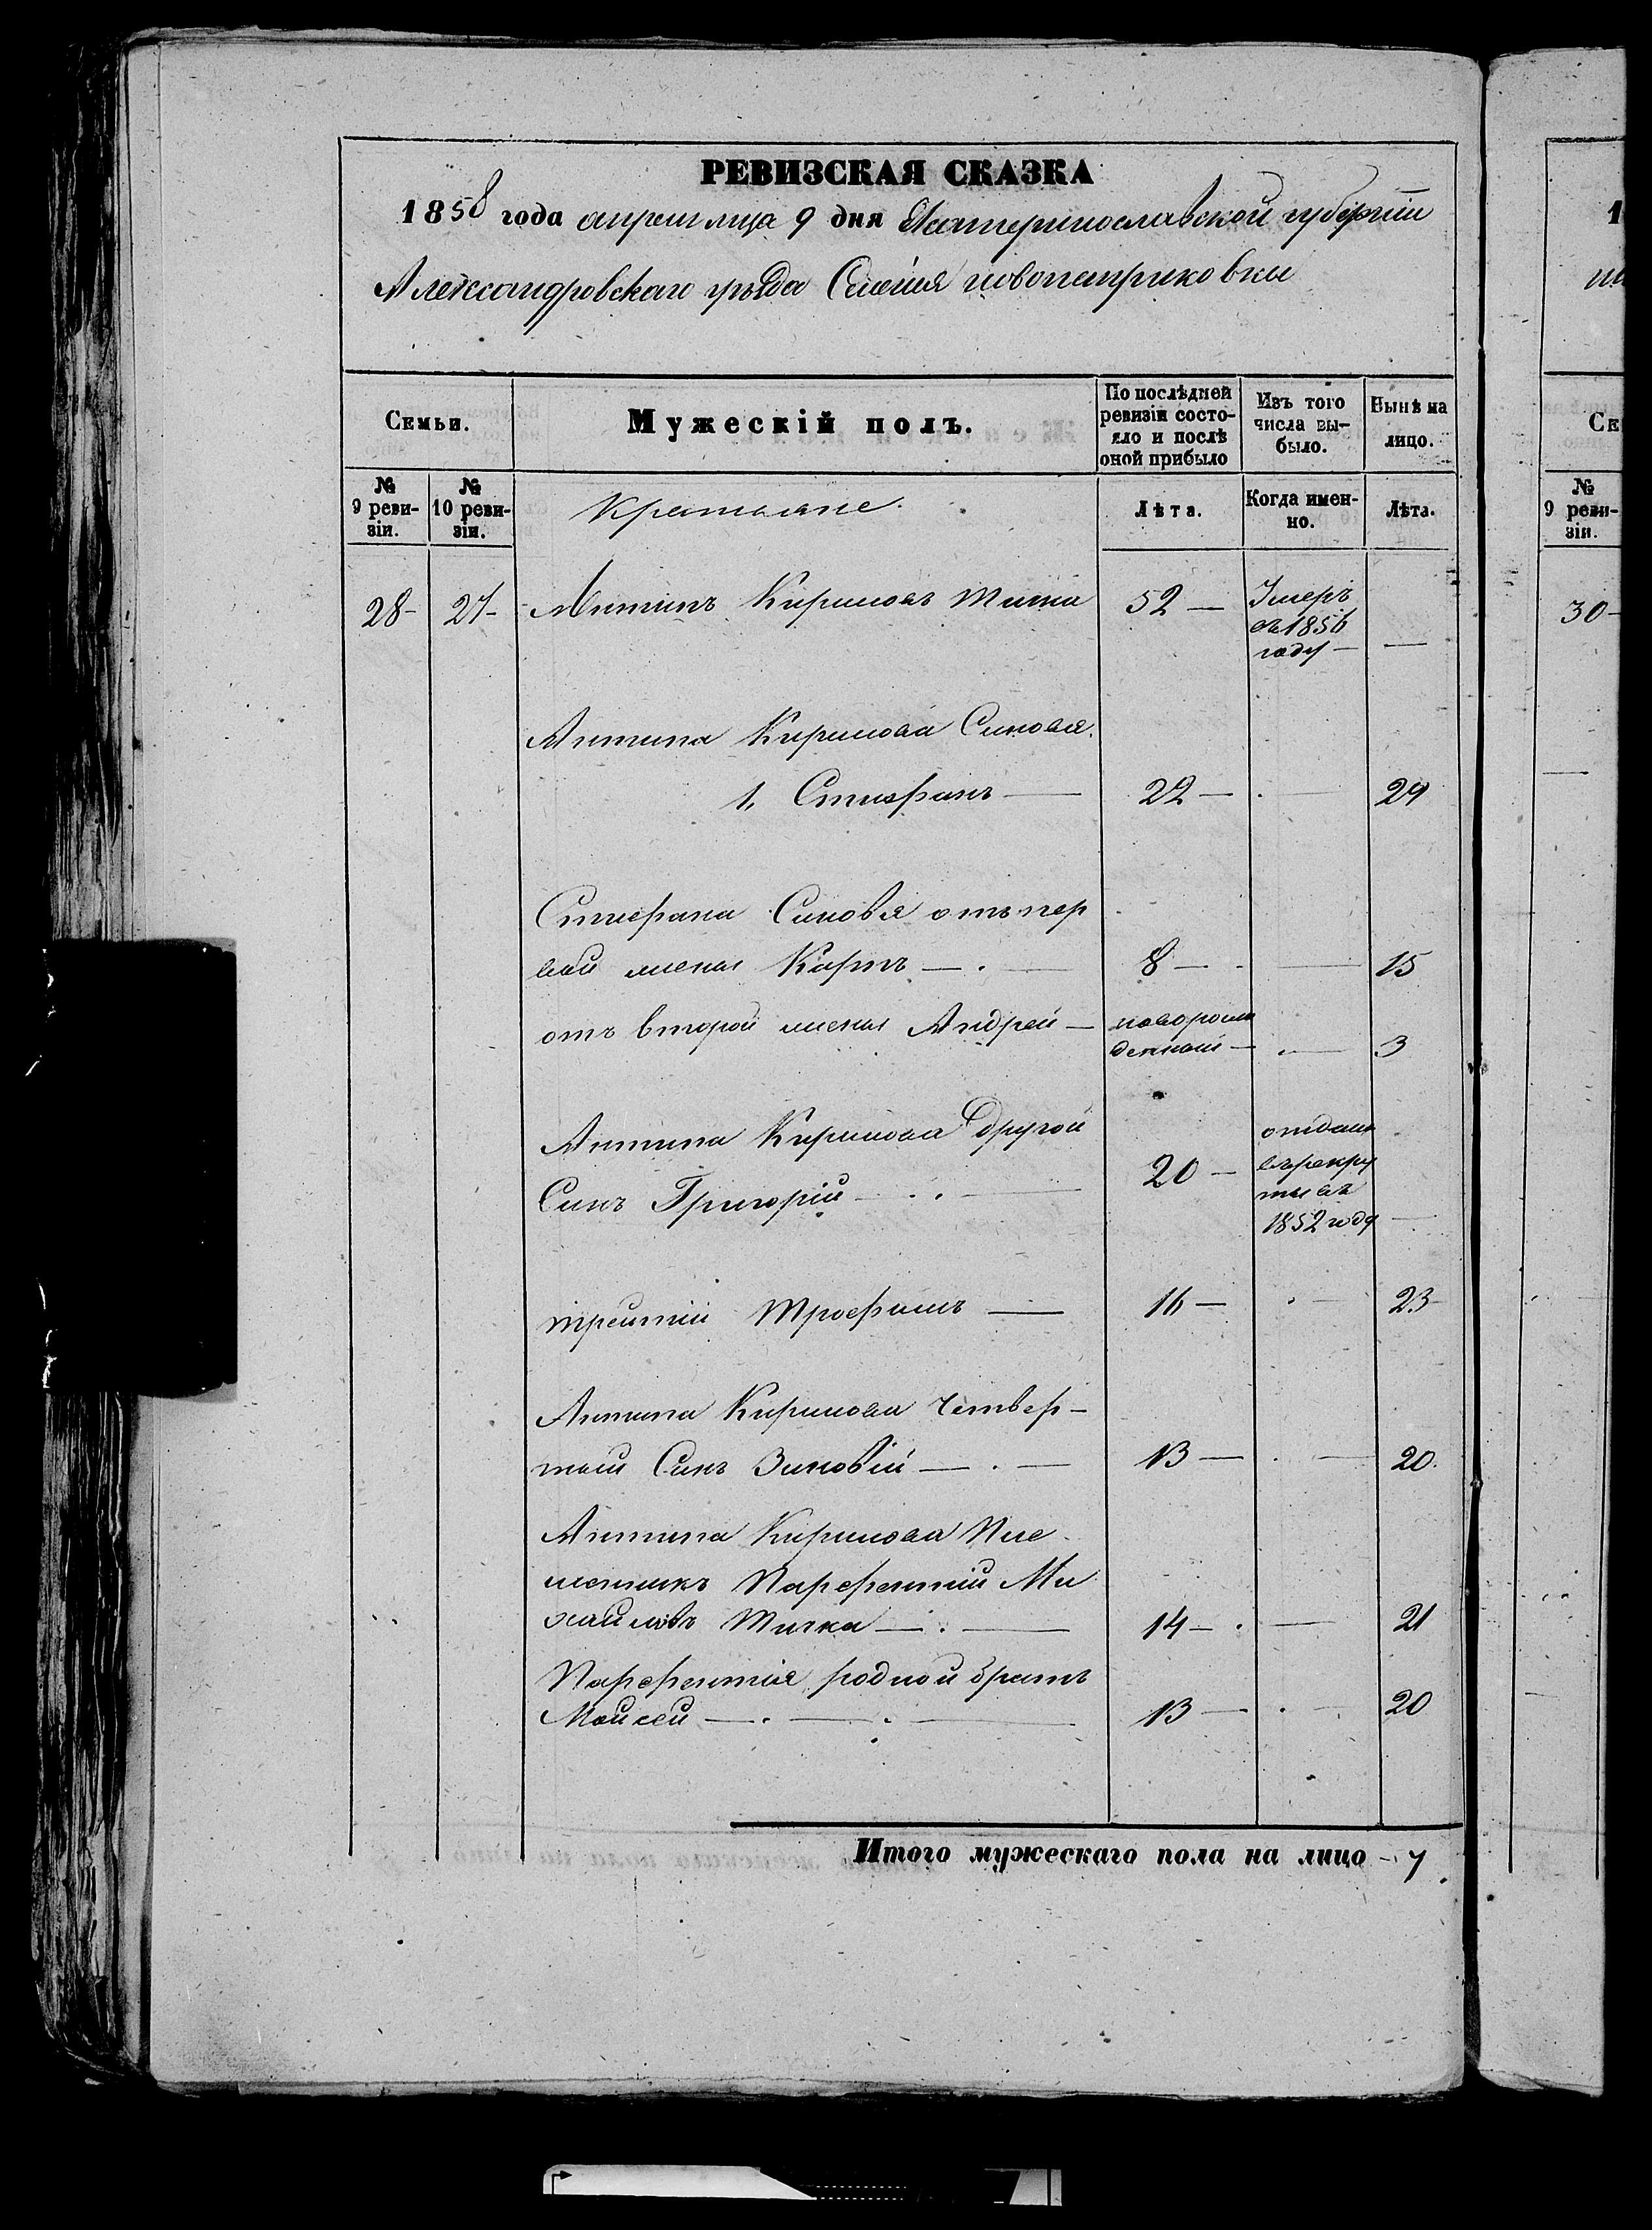 РЕВИЗСКАЯ СКАЗКА
1858 года апреля мца 9 дня Екатеринославской губернiи
Александровскаго уѣзда Селенiя новопетриковки
Семьи.
Мужескiй полъ.
По послѣдней ревизiи состояло и послѣ оной прибыло
Изъ того числа выбыло.
Нынѣ на лицо.
№ 9 ревизiи.
№ 10 ревизiи.
Крестьяне.
Лѣта.
Когда именно.
Лѣта.
28 - 27 - Антипъ Кириловъ 52 — Умеръ
въ 1856
году — —
Антипа Кирилова Синовья
1, Стефанъ — 22 — . — 29
Стефана Синовья отъ пер
вой жены Карпъ — . — 8 — . — 15
отъ второй жены Андрей — новорож
денный — . — 3
Антипа Кирилова Другой
Синъ Григорiй — . . — 20 — отданъ
въ рекру
ты въ
1852 году —
третiй Трофимъ — 16 — . — 23
Антипа Кирилова Четвер-
тый Синъ Зиновiй — . — 13 — . — 20.
Антипа Кирилова Пле
меникъ Парфентiй Ми
хайловъ — . — 14 — . — 21
Парфентiя родной братъ
Мойсей — . — . — 13 — . — 20
Итого мужескаго пола на лицо - 7
1
Се
№
9 реви-
зiи.
30 -